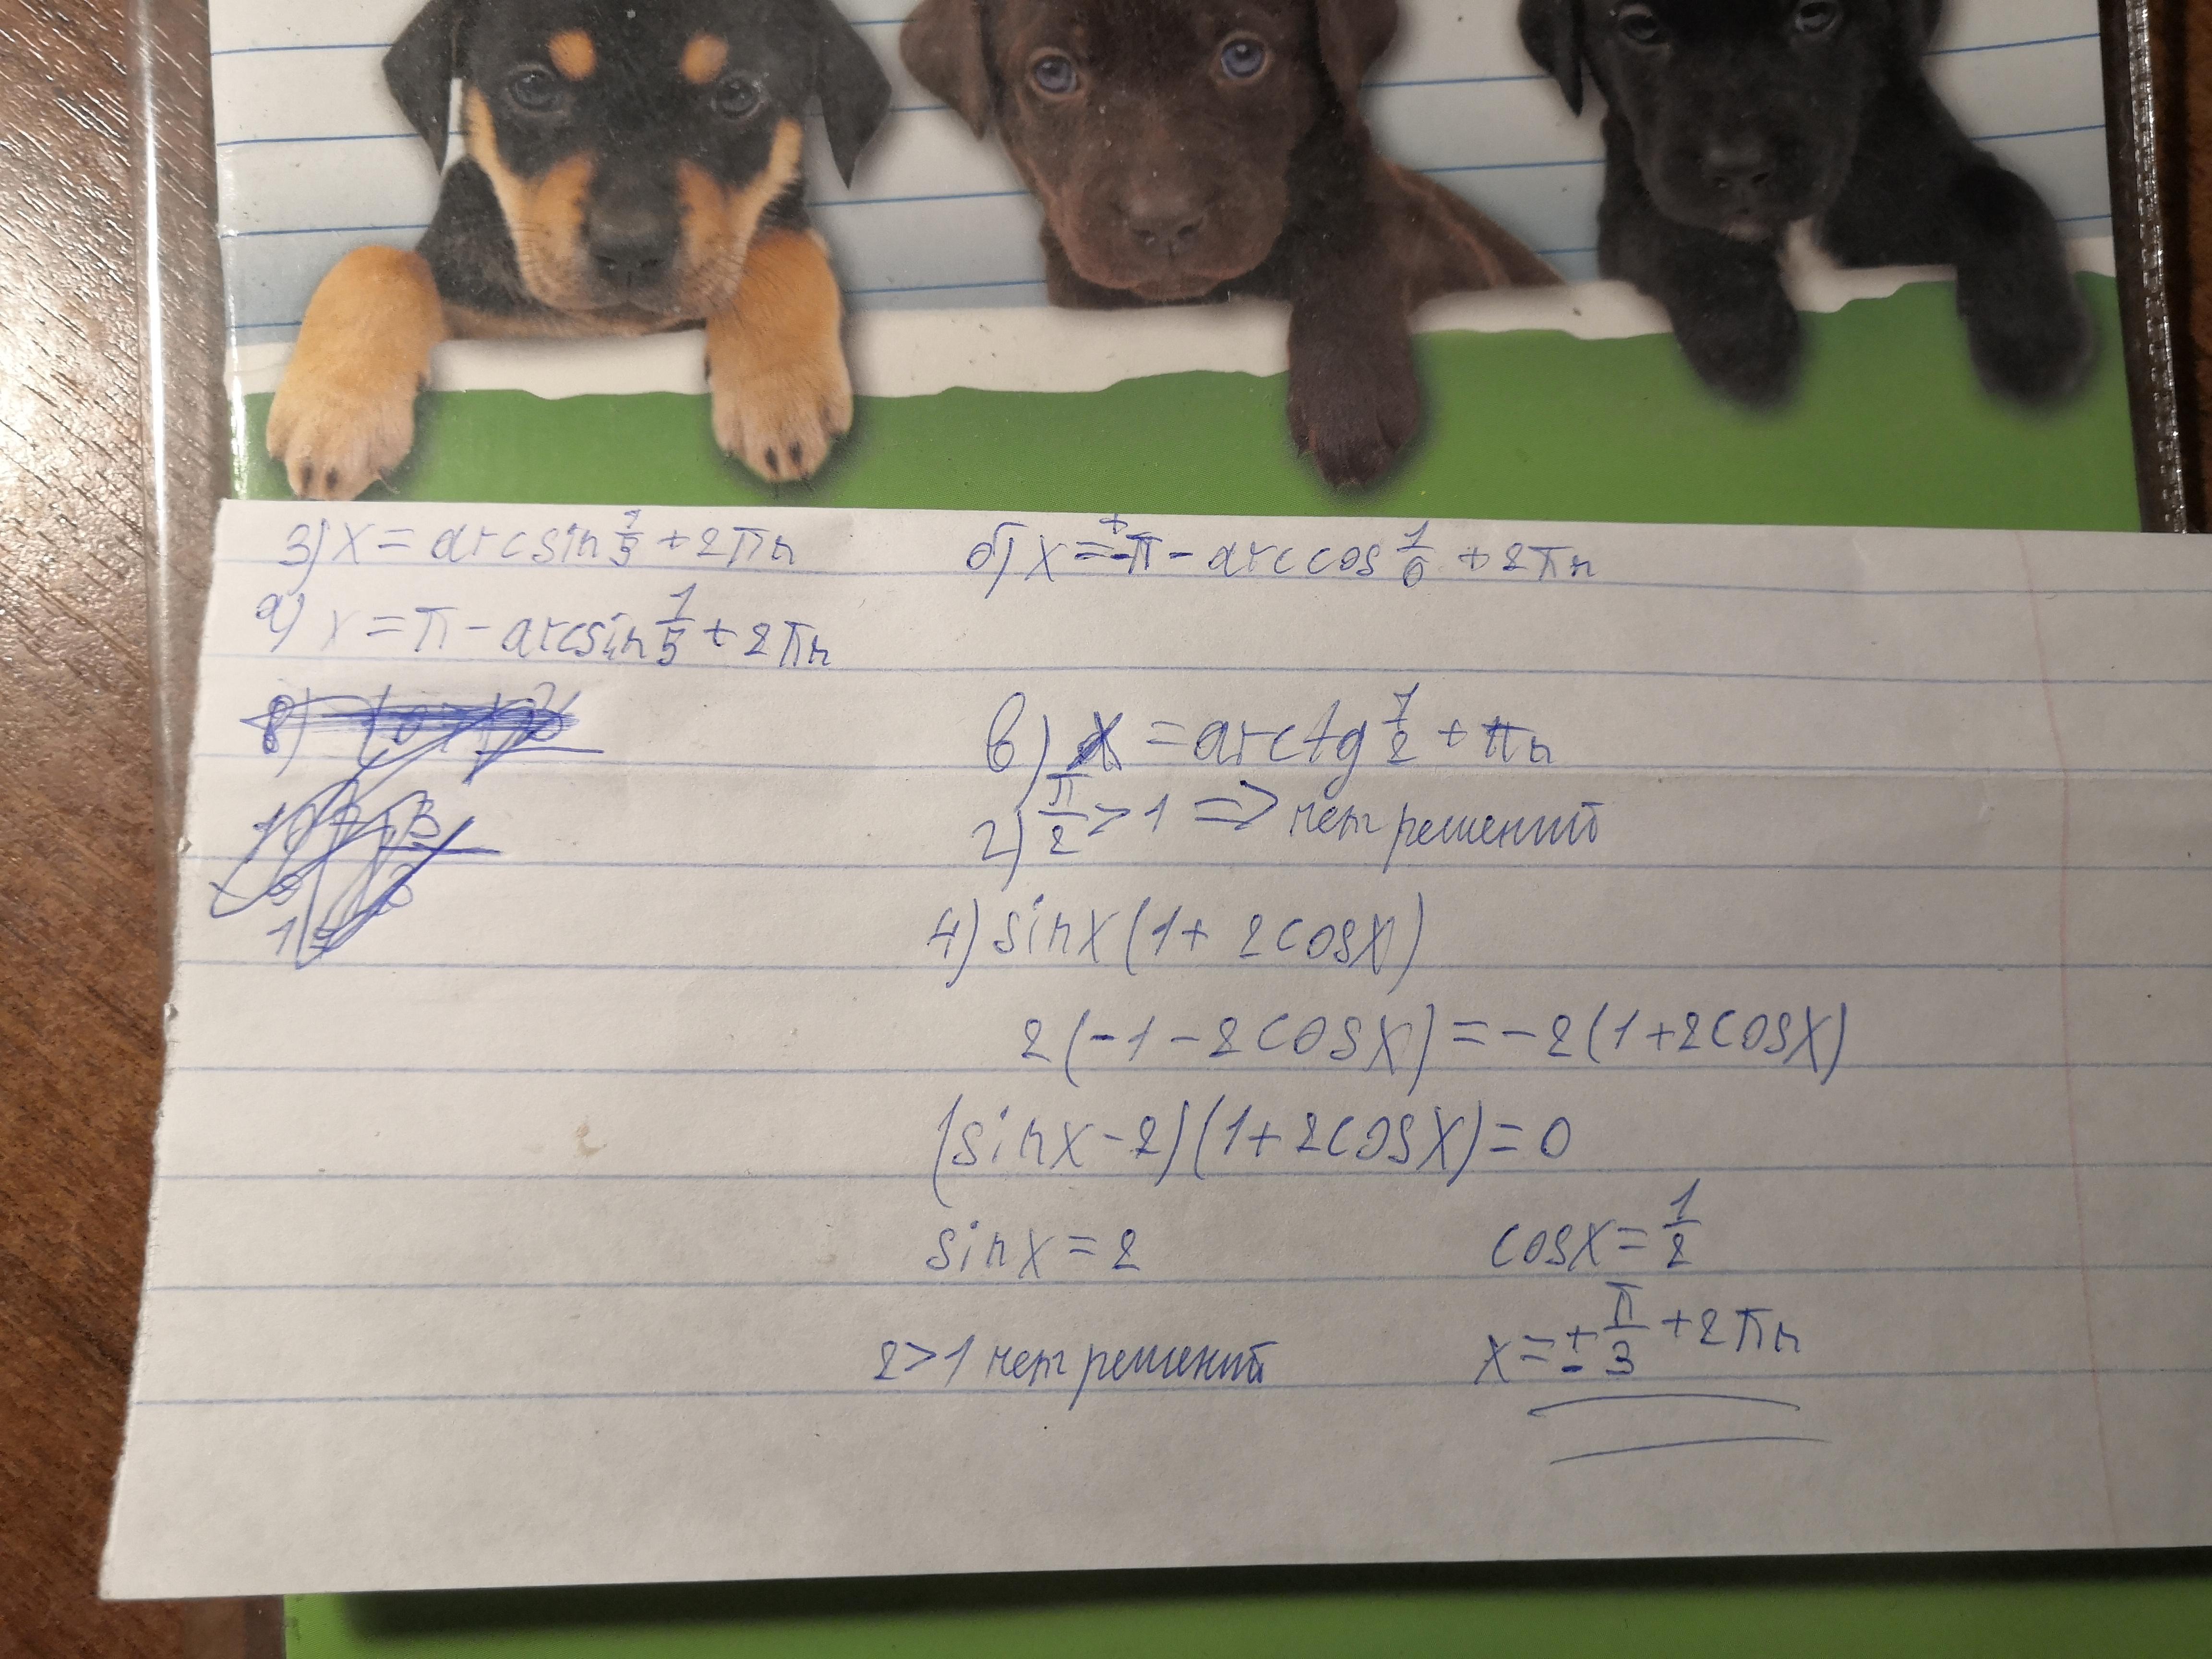 3) x = arcsin 1/5 + 2πn
а) x = π - arcsin 1/5 + 2πn
б) x = ±π - arccos 1/6 + 2πn
в) x = arctg 7/2 + πn
г) π/2 > 1 => нет решений
4) sinx(1 + 2cosx)
2(-1 - 2cosx) = -2(1 + 2cosx)
(sinx - 2)(1 + 2cosx) = 0
sinx = 2 cosx = 1/2
2 > 1 нет решений x = ± π/3 + 2πn